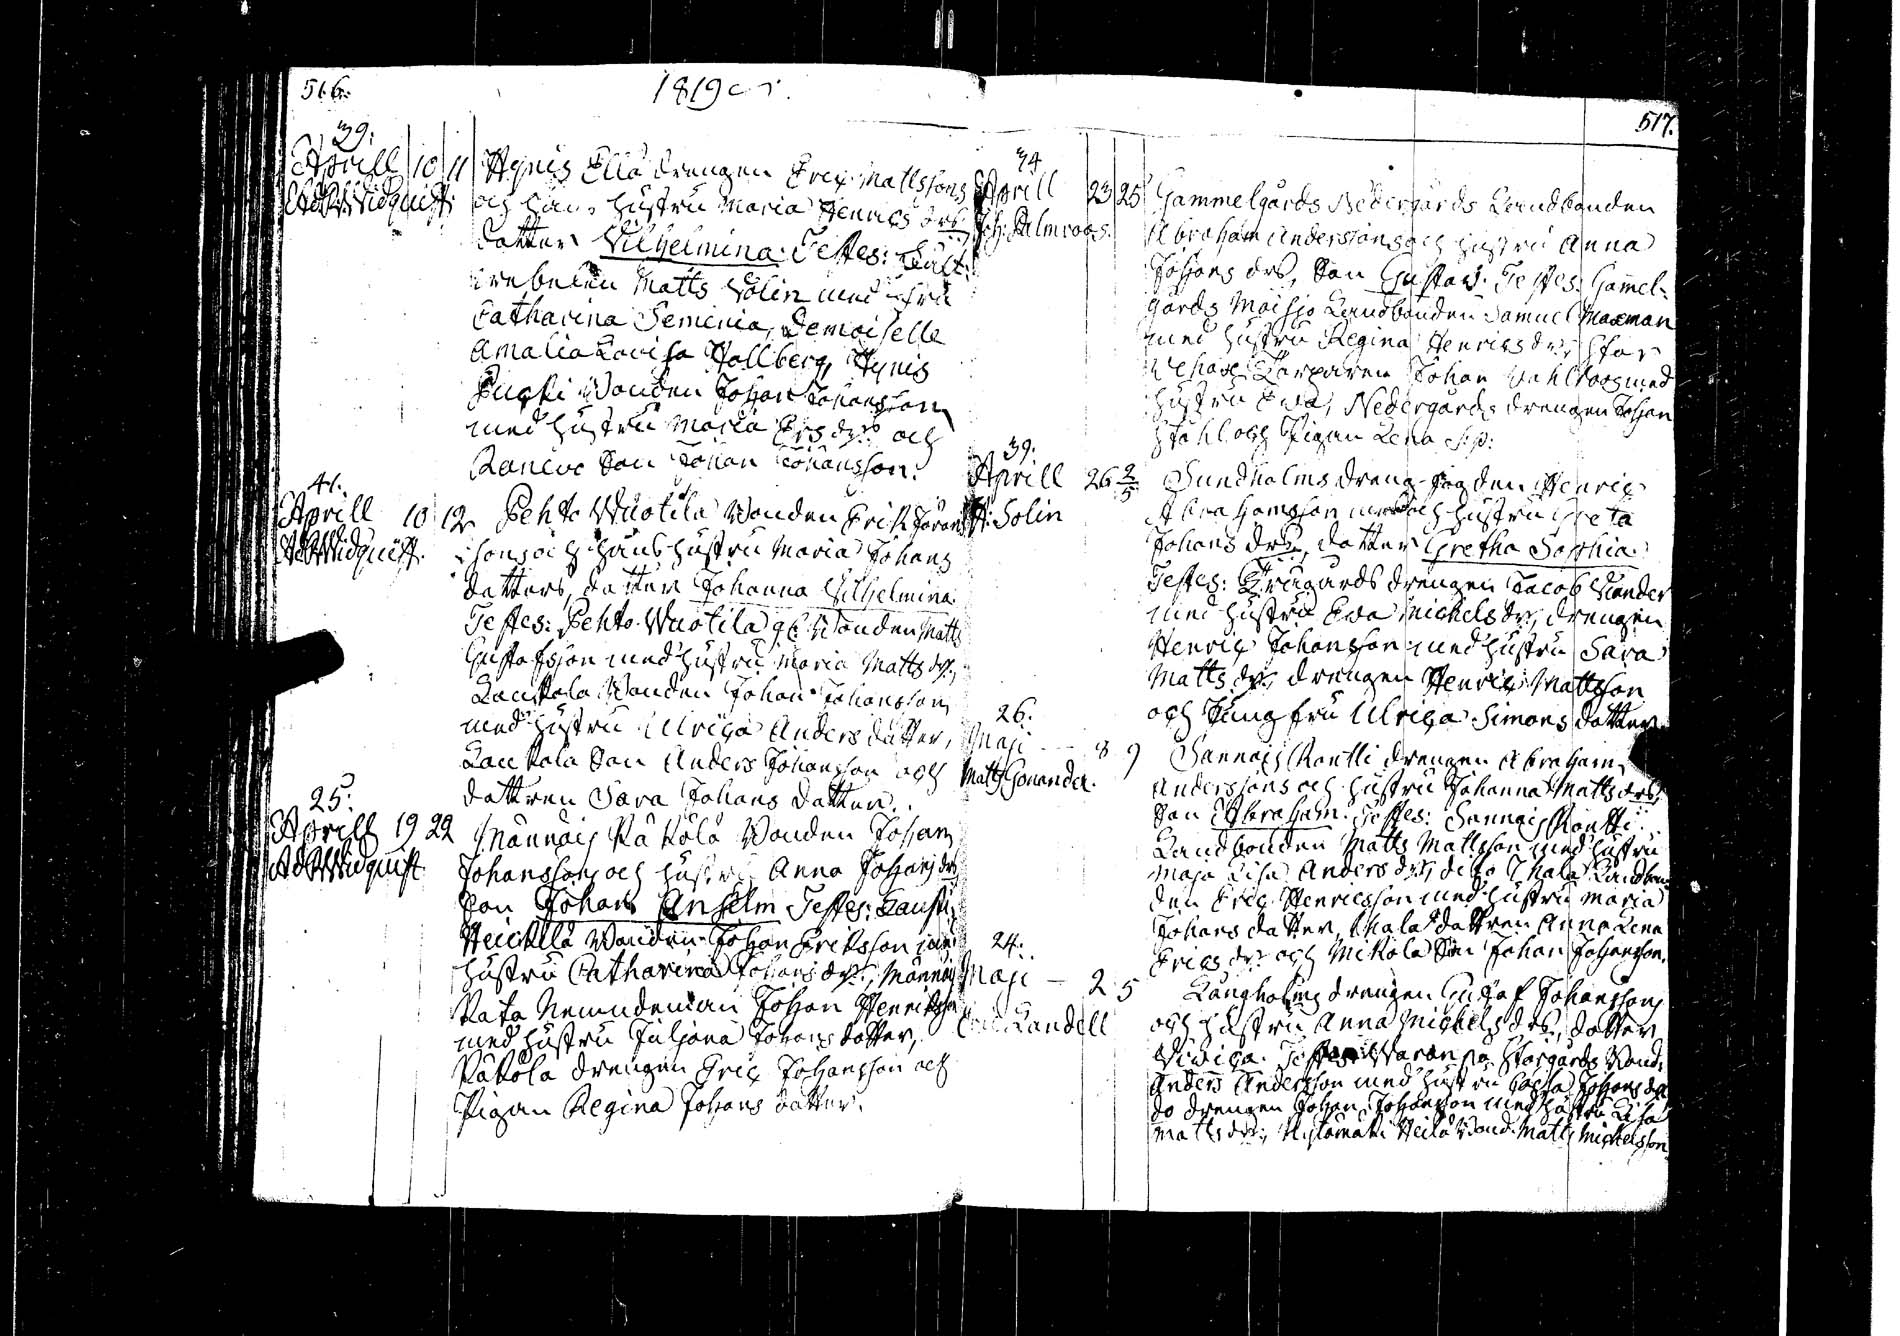 516.
1819
39:
Aprill 10 11
Ad. Widquist.
Hynis Ella drengen Eric Mattssons
och hans hustru Maria Henrics drs
datter Vilhelmina. Testes:
Matts Solin med fru
Catharina Semenia, Demoiselle
Amalia Lovisa Hallberg, Hynis
Pucki Bonden Johan Johansson
med hustru Maria Ers dr och
son Johan Johansson.
41.
Aprill 10 12
Ad. Widquist.
Pehto Wuotila Bonden Erik Johans
sons och hans hustru Maria Johans
datters, datter Johanna Vilhelmina.
Testes: Pehto Wuotila Bonden Matts
Gustafsson med hustru Maria Matts dr,
Laurkola Bonden Johan Johansson
med hustru Ulrica Anders datter,
Laurkola Son Anders Johansson och
dattren Sara Johans datter.
25:
Aprill 19 22
Ad. Widquist
Männäis Päkölä Bonden Johan
Johanssons och hustru Anna Johans drs
Son Johan Anselm Testes:
Heickilä Bonden Johan Eriksson med
hustru Catharina Johans dr, Männäis
Nemndeman Johan Henriksson
med hustru Juliana Johans datter,
Päkölä drengen Eric Johansson och
Pigan Regina Johans datter.
517.
34
Aprill 23 25
Joh: Palmroos.
Gammelgårds Nedergårds Landbonden
Abraham Anderssons och hustru Anna
Johans drs, Son Gustav. Testes: Gamel-
gårds Landbonden Samuel
med hustru Regina Henrics dr, Stor
Torparen Johan Vahlroos med
hustru Eva, Nedergårds drengen Johan
Ståhl och Pigan Lena
39:
Aprill 26 2/5
A: Solin
Sundholms dreng Henric
Abrahamsson och hustru Greta
Johans drs, datter Gretha Sophia.
Testes: drengen Jacob Wander
med hustru Eva Michels dr, drengen
Henric Johansson med hustru Sara
Matts dr, drengen Henric Mattsson
och Jungfru Ulrica Simons datter
26:
Maji 8 9
Matts Gonander.
Sannais Rantti drengen Abraham
Anderssons och hustru Johanna Matts drs
Son Abraham. Testes: Sannais Rantti
Landbonden Matts Mattsson med hustru
Maja Lisa Anders dr, dito Ihala Landbon
den Eric Henricsson med hustru Maria
Johans datter, Ihala dattren Anna Lena
Erics dr och Mikola Son Johan Johansson.
24:
Maji — 2 5
Eric Landell
Långholms drengen Gustaf Johanssons
och hustru Anna Michels drs, datter
Vivica. Testes: Storgårds Bond:
Anders Andersson med hustru Caisa Johans dr
do drengen Johan Johansson med hustru Lisa
Matts dr, Heikä Bond: Matts Michelsson